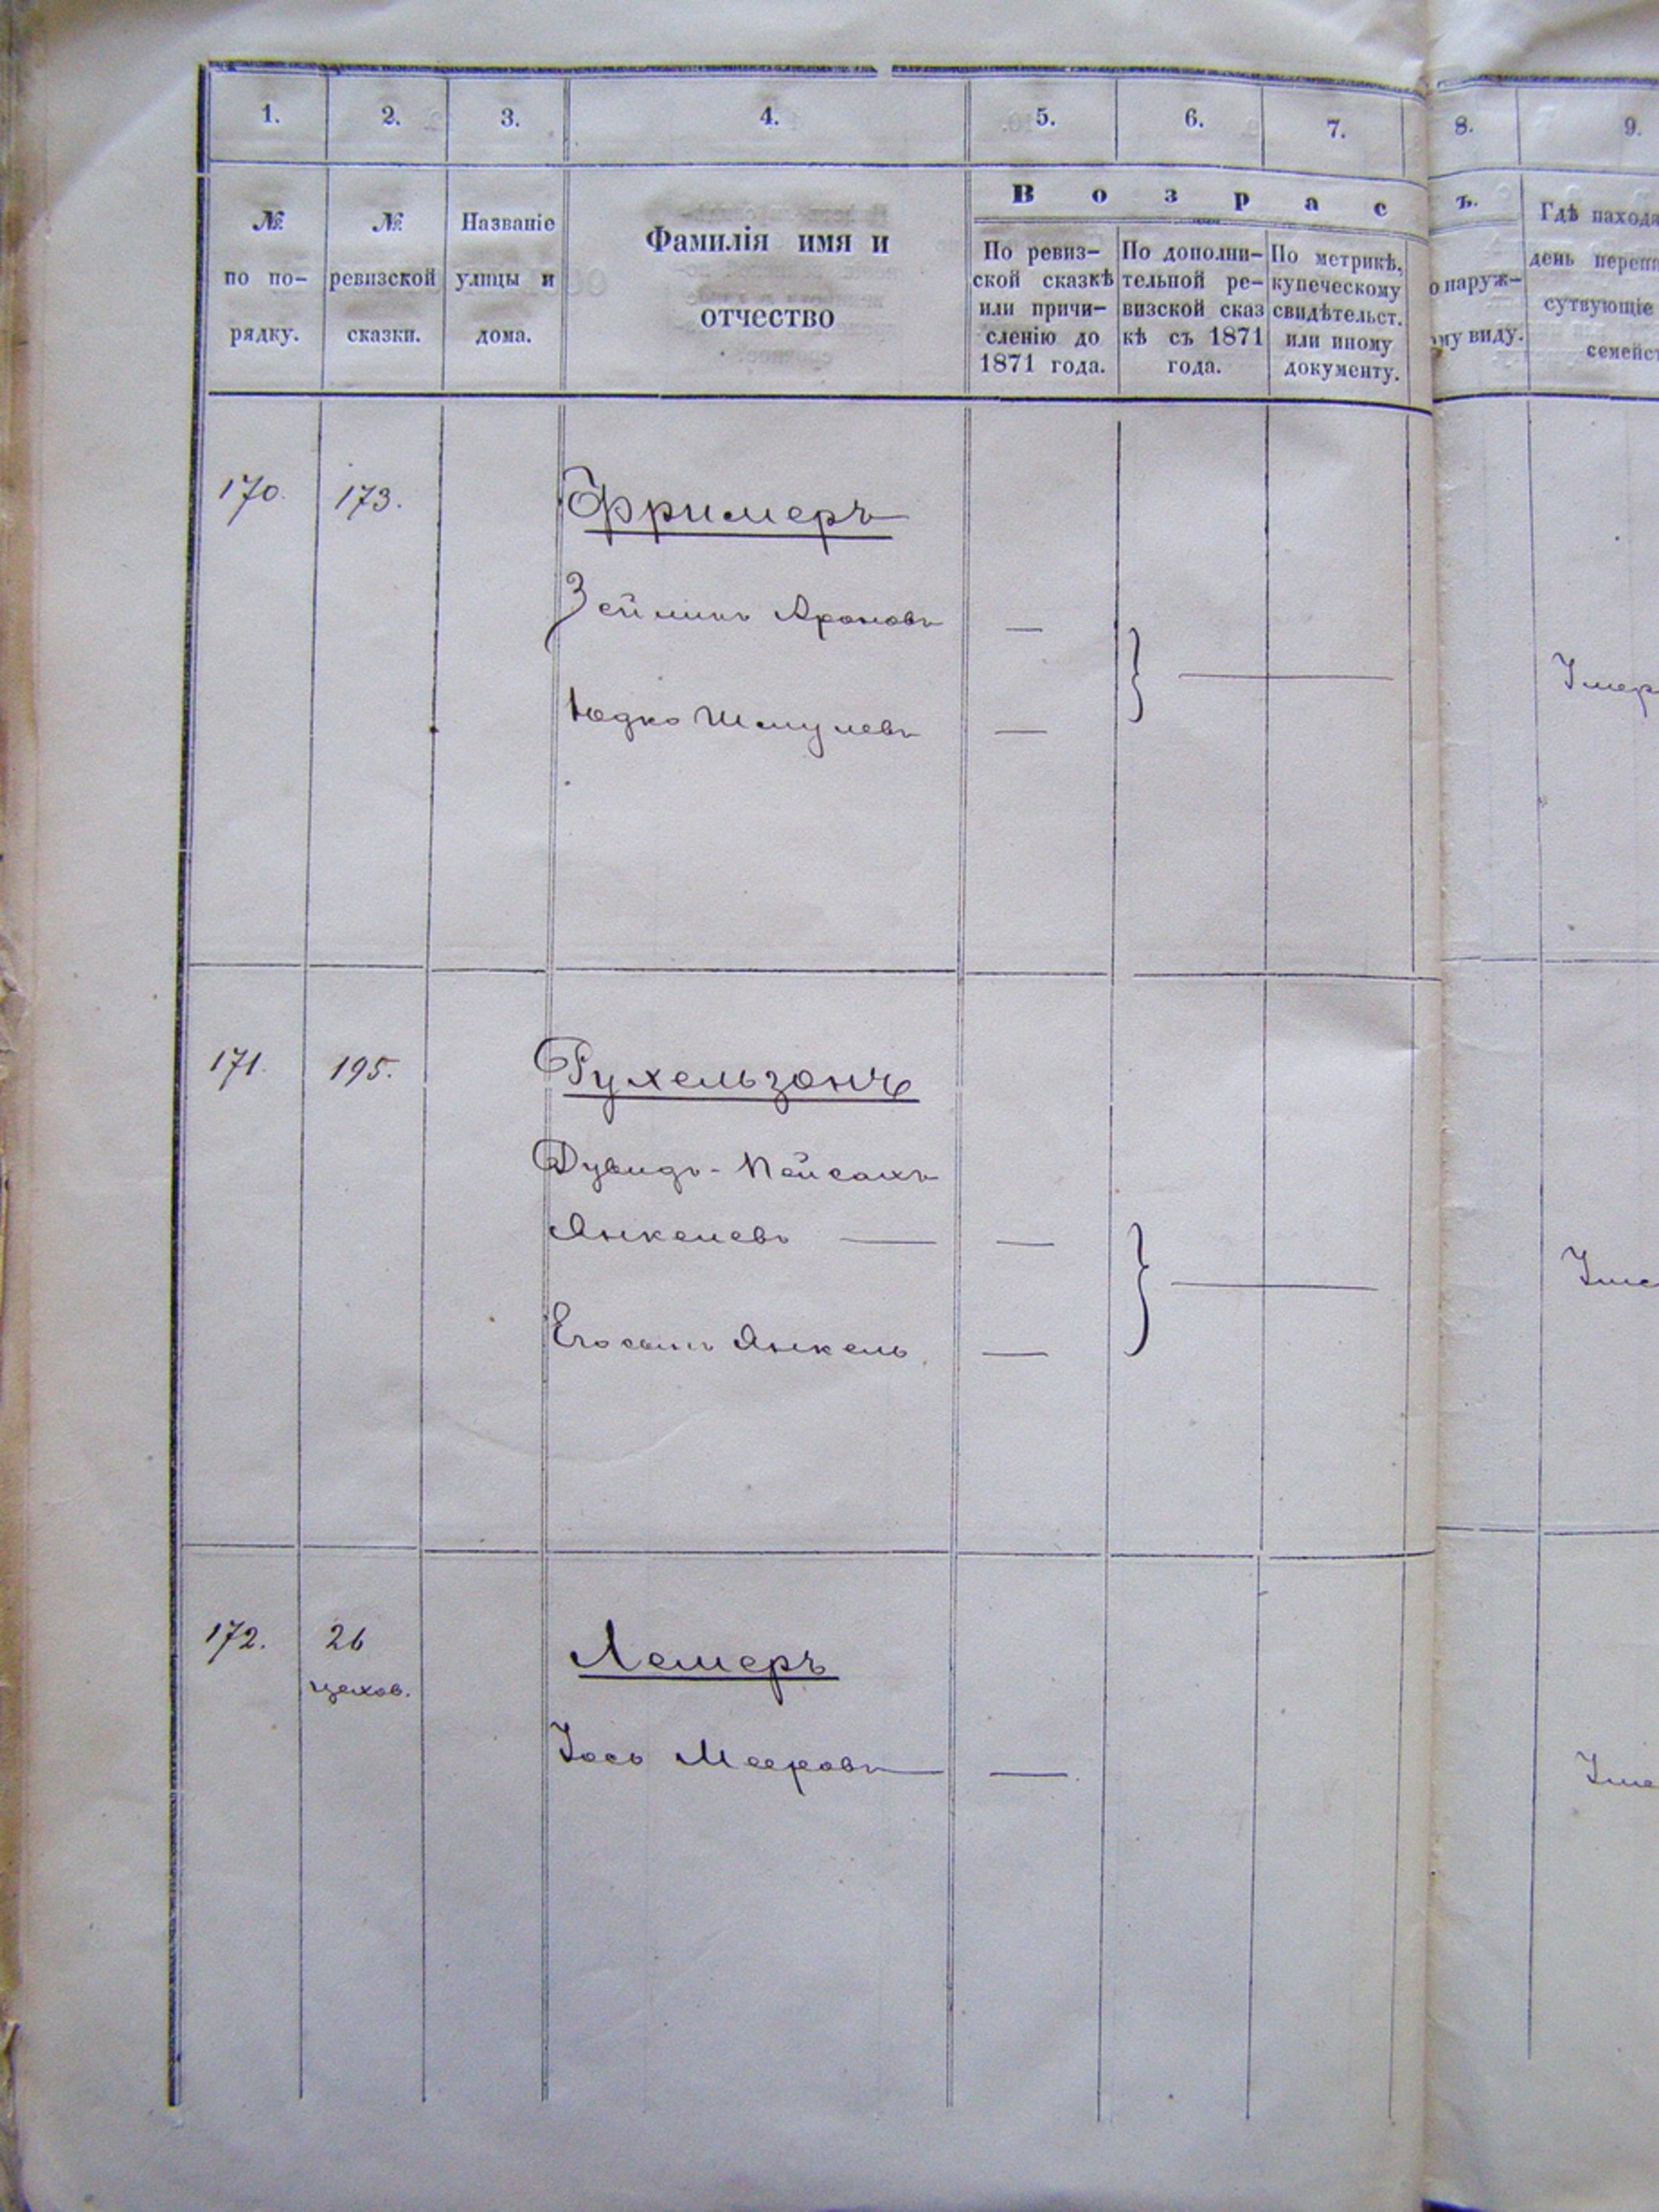 1. 2. 3. 4. 5. 6. 7. 8. 9.
№ по по-рядку.
№ ревизской сказки.
Названіе улицы и дома.
Фамилія имя и отчество
В о з р а с ъ.
По ревиз-
ской сказкѣ
или причи-
сленію до
1871 года.
По дополни-
тельной ре-
визской сказ
кѣ съ 1871
года.
По метрикѣ,
купеческому
свидѣтельст.
или иному
документу.
о наруж-
виду.
Гдѣ находя
день переп
сутвующіе
семейс
170. 173. Фримеръ
Зейликъ Ароновъ —
Юдко Шмулевъ —
Умер
171. 195. Рухельзонъ
Дувидъ-Пейсахъ
Янкелевъ — —
Его сынъ Янкель —
172. 26 Лемеръ
цехов.
Іось Мееровъ —